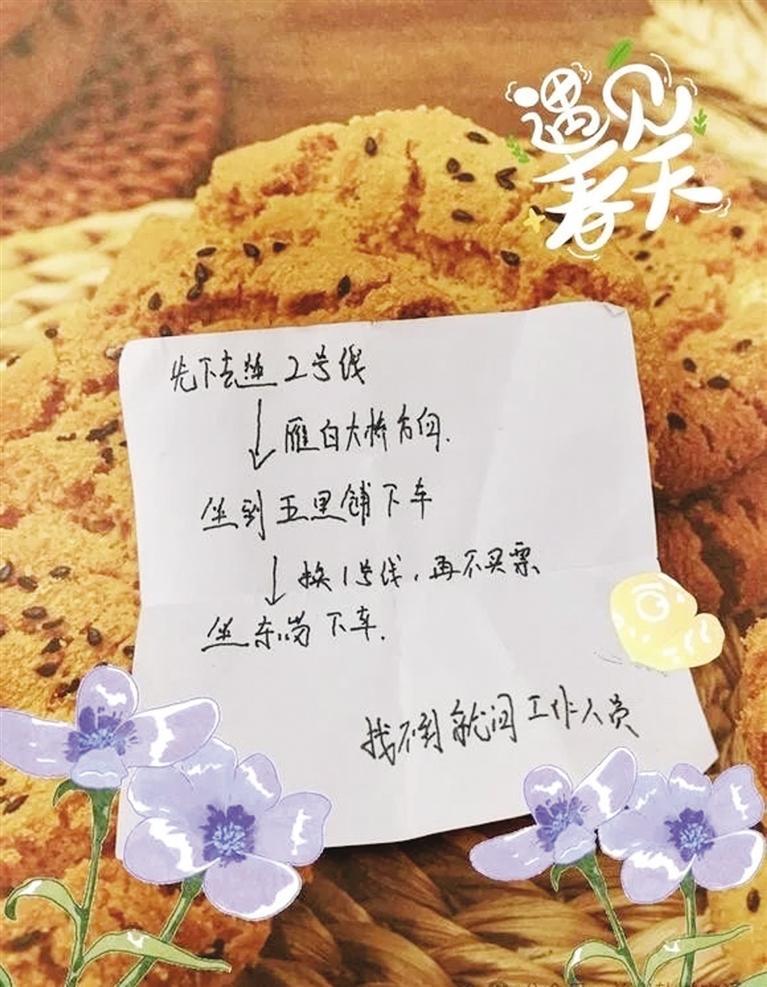 遇见
春天
先下去坐2号线
雁白大桥方向.
坐到五里铺下车
换1号线,再不买票
坐东岗下车.
找不到就问工作人员